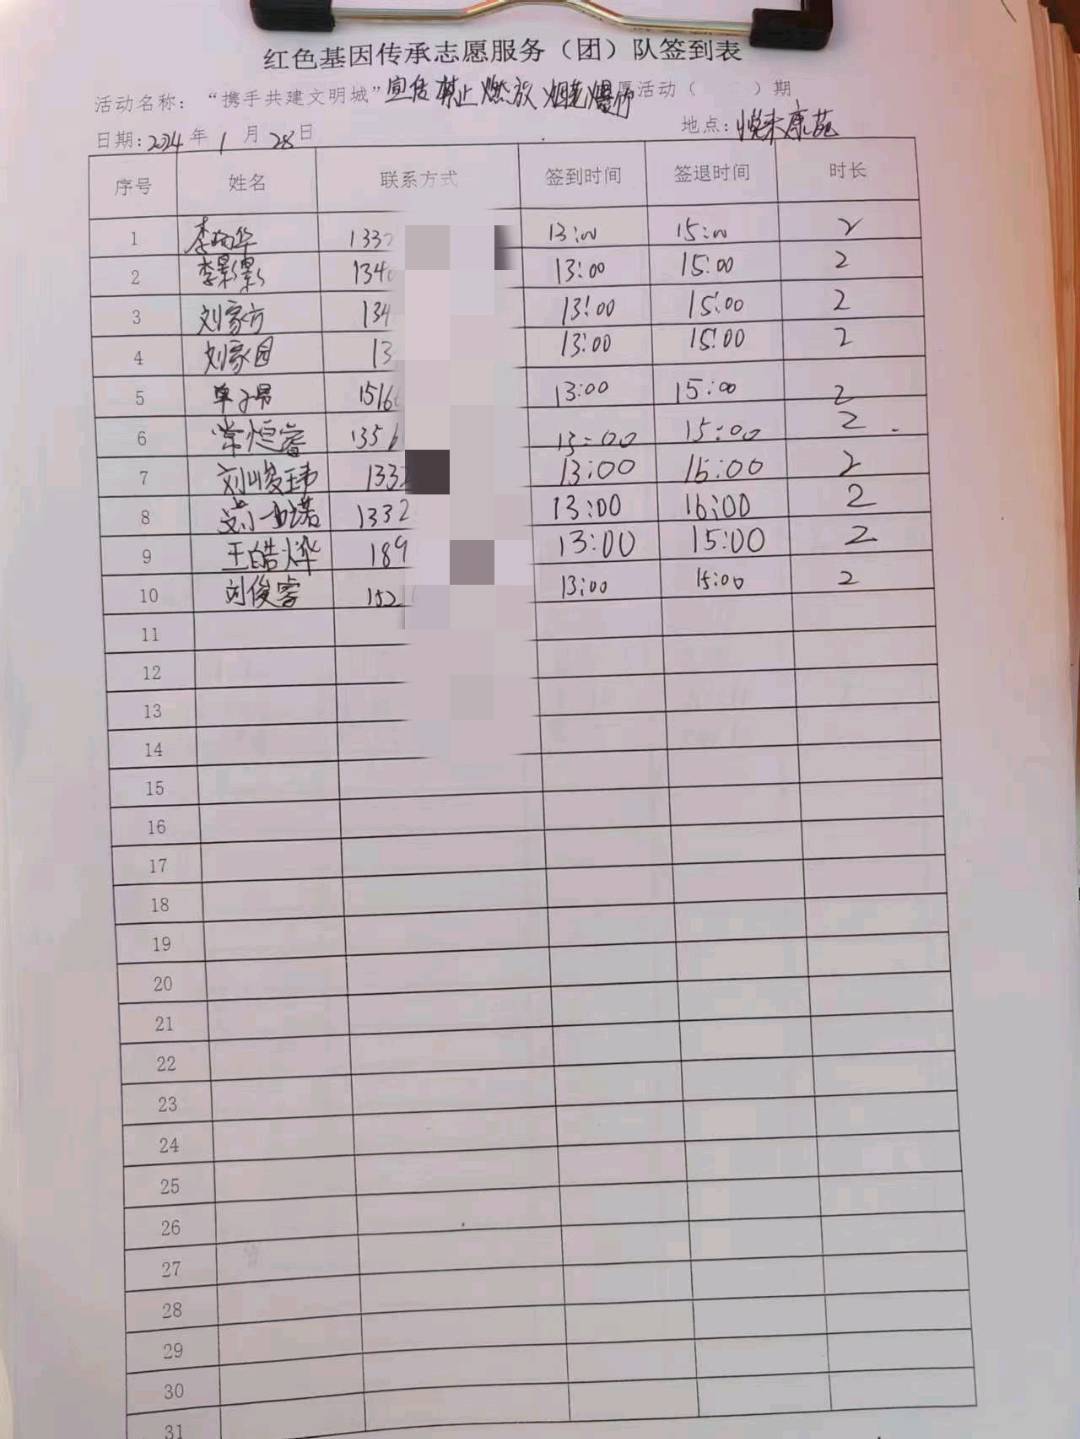 红色基因传承志愿服务（团）队签到表
活动名称：“携手共建文明城”宣传禁止燃放烟花爆竹愿活动（ ）期
日期：2024年1月28日 地点：悦来康苑
序号 姓名 联系方式 签到时间 签退时间 时长
1 1332 13:00 15:00 2
2 李影影 134 13:00 15:00 2
3 刘家方 134 13:00 15:00 2
4 刘家园 13 13:00 15:00 2
5 单子昂 1516 13:00 15:00 2
6 常恒睿 1356 13:00 15:00 2
7 刘峻玮 1332 13:00 15:00 2
8 1332 13:00 15:00 2
9 王皓烨 189 13:00 15:00 2
10 刘俊睿 152 13:00 15:00 2
11
12
13
14
15
16
17
18
19
20
21
22
23
24
25
26
27
28
29
30
31